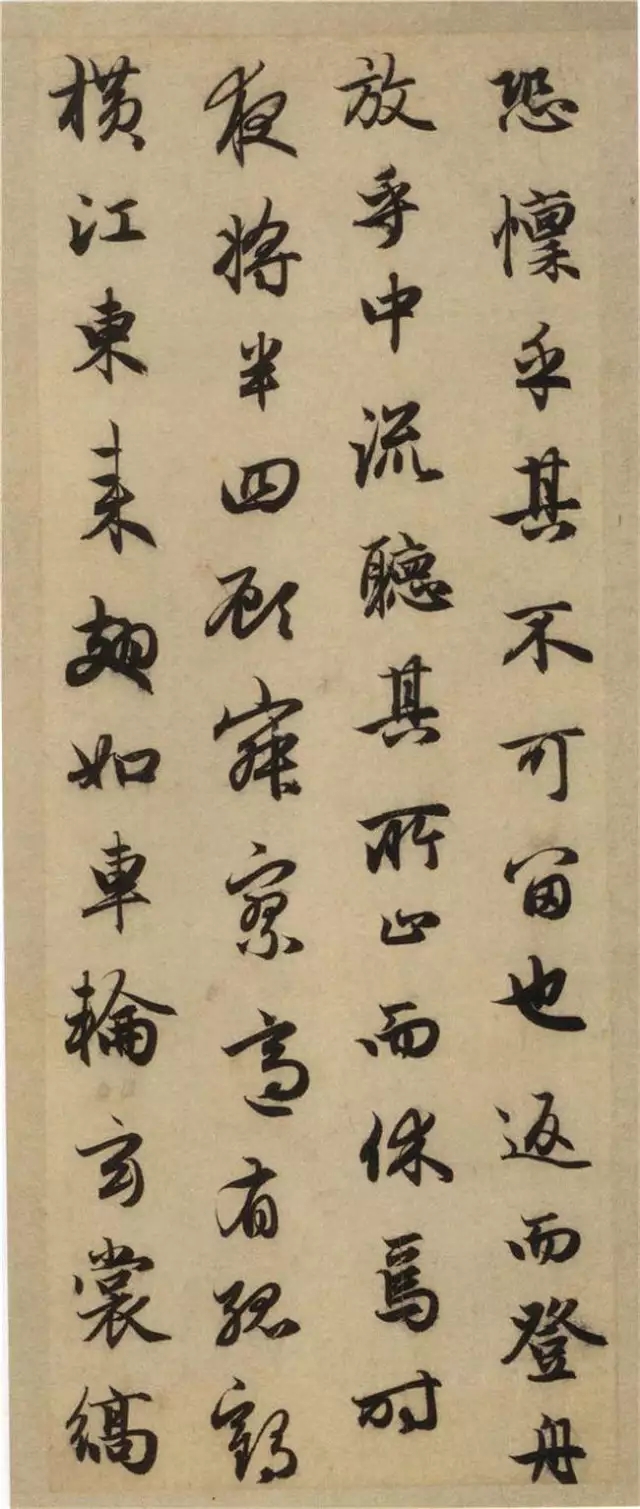 恐懍乎其不可留也返而登舟
放乎中流聽其所止而休焉時
夜將半四顧寂寥適有孤鶴
橫江東來翅如車輪玄裳縞